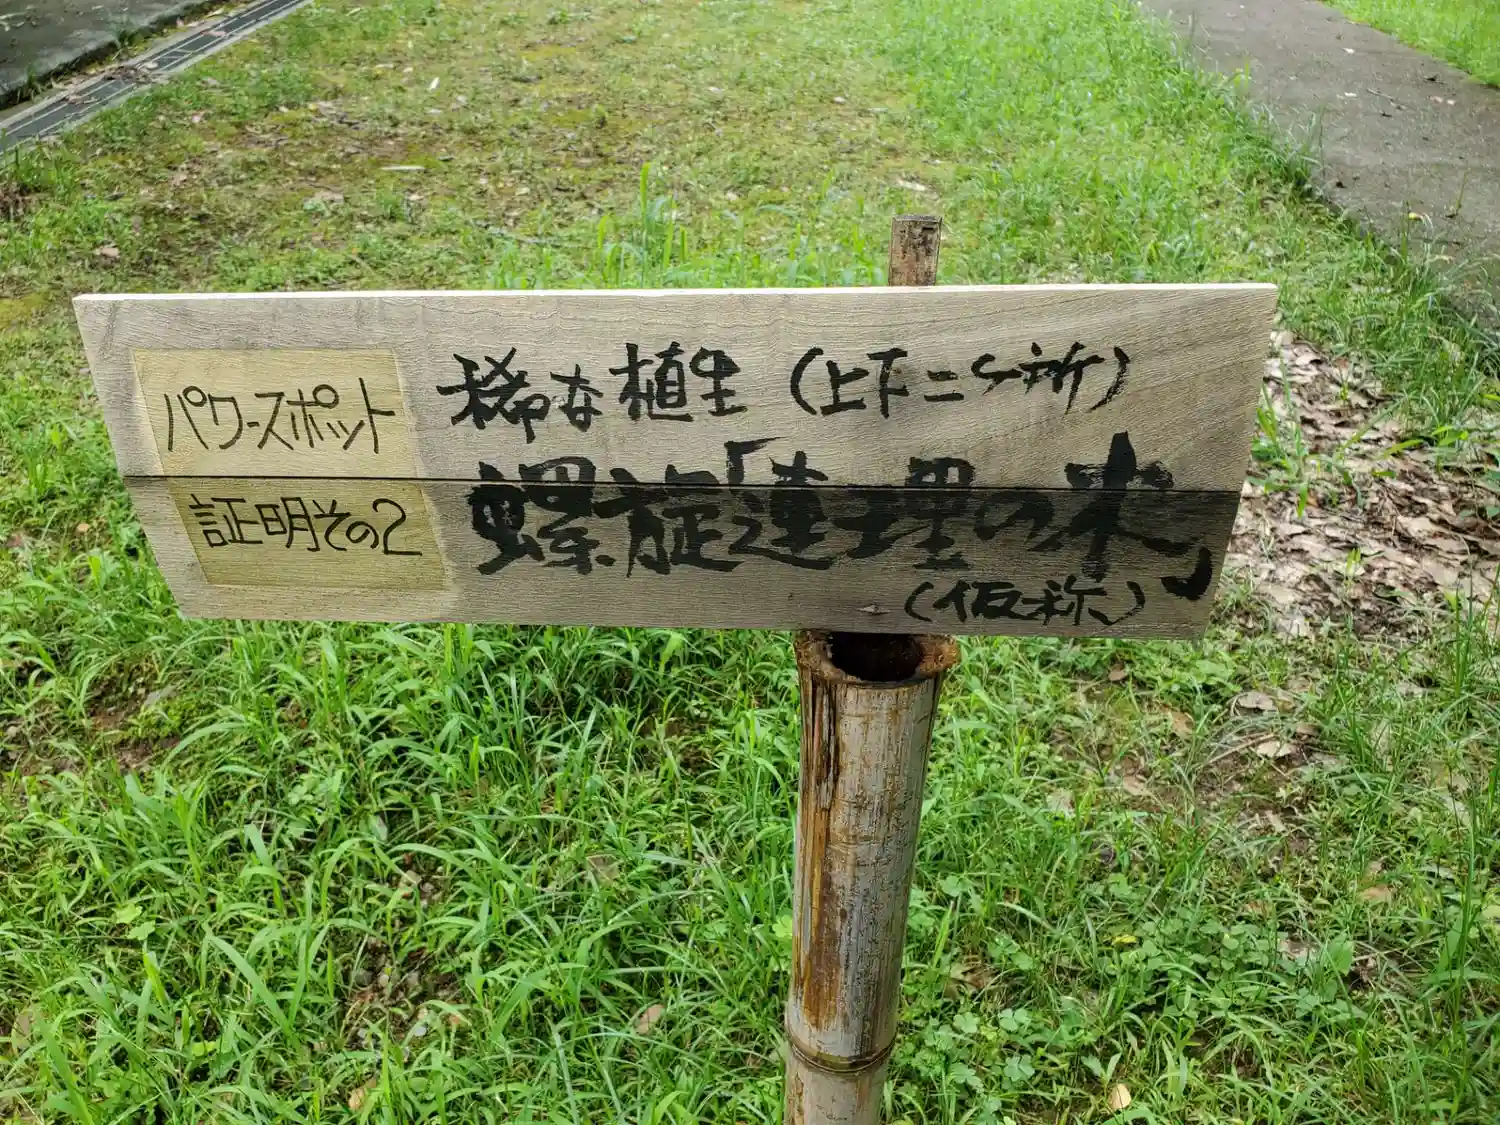 パワースポット
証明その2
稀な植生(上下二ケ所)
螺旋「連理の木」
(仮称)